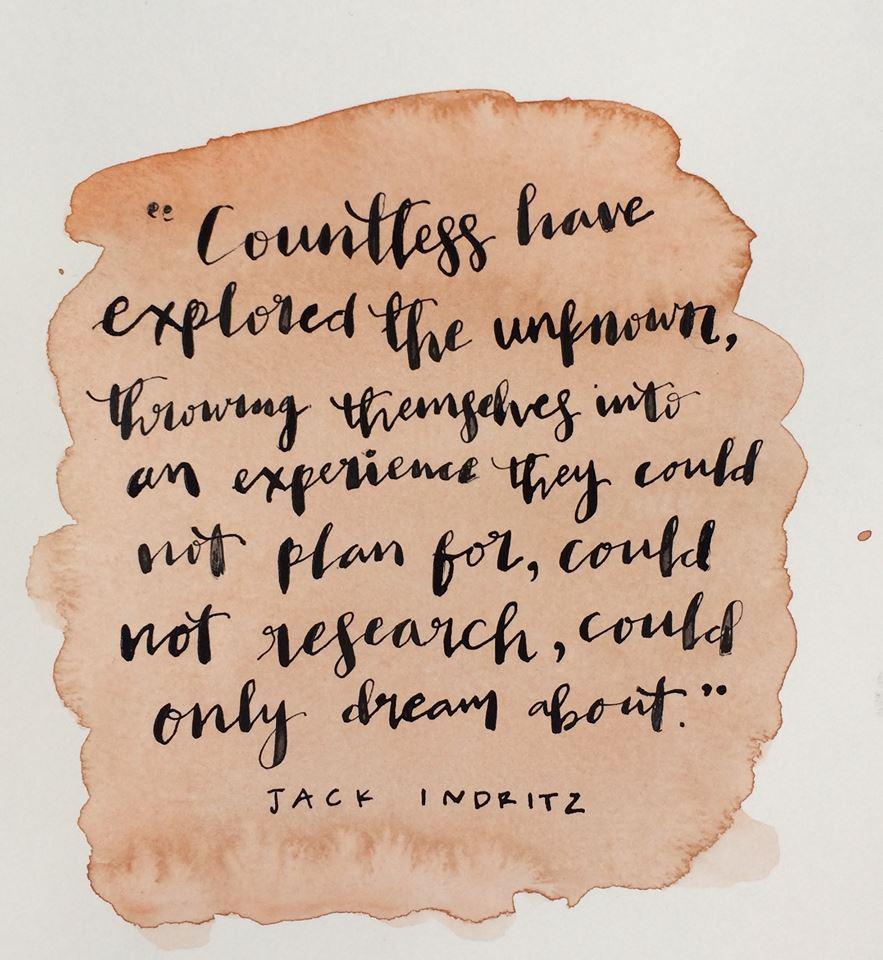 “Countless have
explored the unknown,
throwing themselves into
an experience they could
not plan for, could
not research, could
only dream about.”
JACK INDRITZ